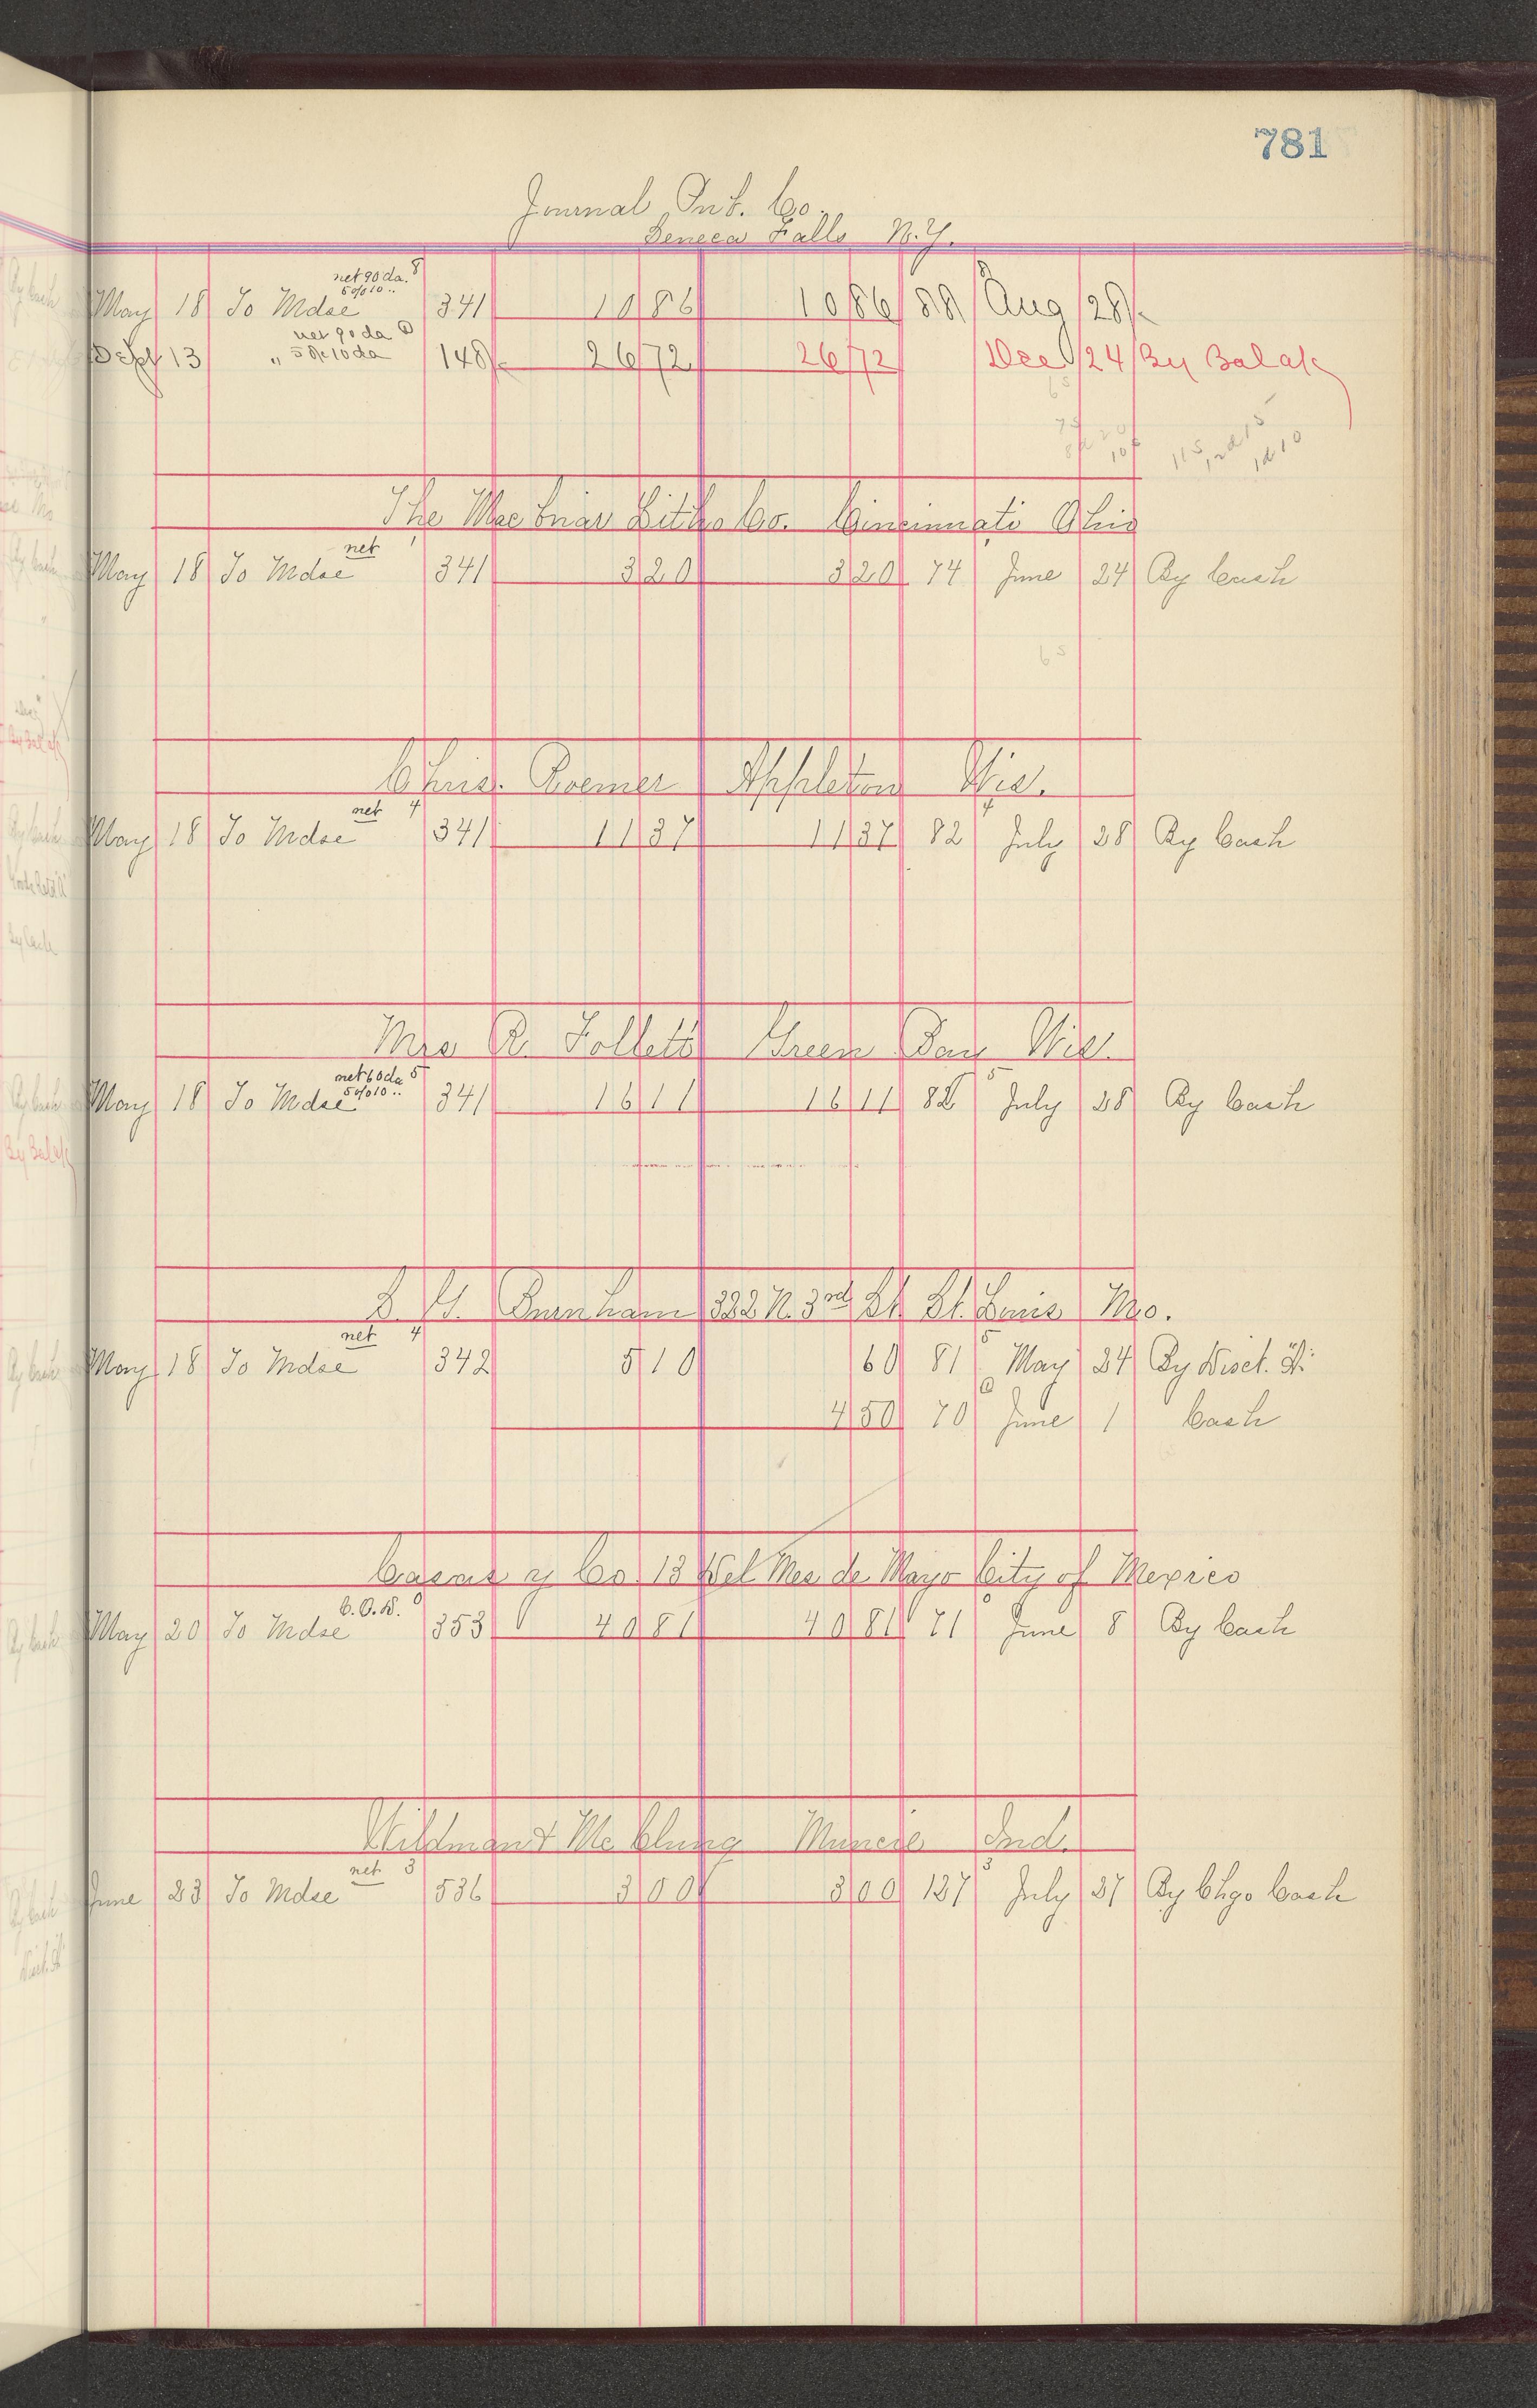 781
Journal Pub. Co.
Seneca Falls N.Y.
net 90 da. 8
5 0/0 10 ..
May 18 To Mdse 341 10 86 10 86 88 Aug 28
net 90 da
Sept 13 " 5 % 10 da 148 26 72 26 72 Dec 24 By Balak
The Mac Briar Litho Co. Cincinnati Ohio
net 1
May 18 To Mdse 341 3 20 3 20 74 June 24 By Cash
6 5
Chris. Roemer Appleton Wis.
net 4 4
May 18 To Mdse 341 11 37 11 37 82 July 28 By Cash
Mrs R. Follett Green Bay Wis.
net 60 da 5 5
5 0/0 10 ..
May 18 To Mdse 341 16 11 16 11 82 July 28 By Cash
Burnham N. 3rd St. St. Louis Mo.
net 4 5
May 18 To Mdse 342 5 10 60 81 May 24 By Disct.
4 50 70 June 1 Cash
Casas y Co. 13 Del Mes de Mayo City of Mexico
C.O.D. 0 0
May 20 To Mdse 353 40 81 40 81 71 June 8 By Cash
Wildman & McClung Muncie Ind.
net 3 3
June 23 To Mdse 536 3 00 3 00 127 July 27 By Chgo Cash